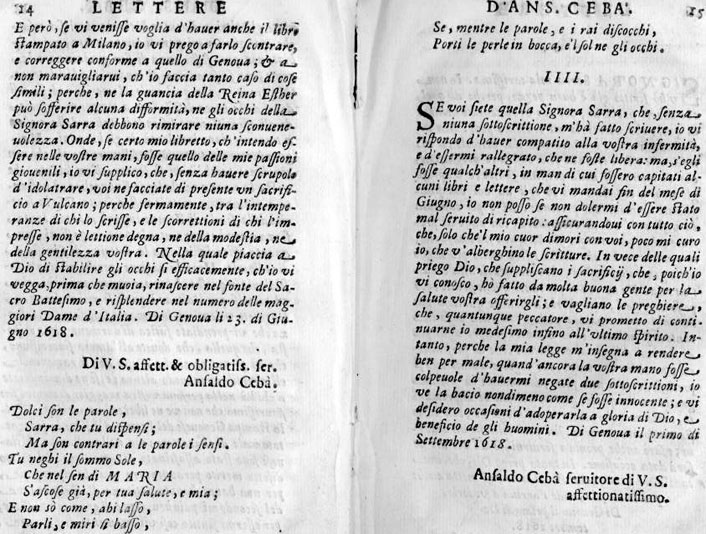 14 LETTERE
E però, se vi venisse voglia d'hauer anche il libro
stampato a Milano, io vi prego a farlo scontrare,
e correggere conforme a quello di Genoua; & a
non marauigliarui, ch'io faccia tanto caso di cose
simili; perche, ne la guancia della Reina Esther
può sofferire alcuna difformità, ne gli occhi della
Signora Sarra debbono rimirare niuna sconuene-
uolezza. Onde, se certo mio libretto, ch'intendo es-
sere nelle vostre mani, fosse quello delle mie passioni
giouenili, io vi supplico, che, senza hauere scrupolo
d'idolatrare, voi ne facciate di presente vn sacrifi-
cio a Vulcano; perche fermamente, tra l'intempe-
ranze di chi lo scrisse, e le scorrettioni di chi l'im-
presse, non è lettione degna, ne della modestia, ne
della gentilezza vostra. Nella quale piaccia a
Dio di stabilire gli occhi sì efficacemente, ch'io vi
vegga, prima che muoia, rinascere nel fonte del Sa-
cro Battesimo, e risplendere nel numero delle mag-
giori Dame d'Italia. Di Genoua li 23. di Giu-
gno 1618.
Di V. S. affett. & obligatiss. ser.
Ansaldo Cebà.
Dolci son le parole,
Sarra, che tu dispensi;
Ma son contrari a le parole i sensi.
Tu neghi il sommo Sole,
Che nel sen di MARIA
S'ascose già, per tua salute, e mia;
E non sò come, ahi lasso,
Parli, e miri sì basso,
D'ANS. CEBA'. 15
Se, mentre le parole, e i rai discocchi,
Porti le perle in bocca, e'l sol ne gli occhi.
IIII.
SE voi siete quella Signora Sarra, che, senza
niuna sottoscrittione, m'hà fatto scriuere, io vi
rispondo d'hauer compatito alla vostra infermità,
e d'essermi rallegrato, che ne foste libera: ma, s'egli
fosse qualch'altri, in man di cui fossero capitati al-
cuni libri e lettere, che vi mandai fin del mese di
Giugno, io non posso se non dolermi d'essere stato
mal seruito di ricapito: assicurandoui con tutto ciò,
che, solo che'l mio cuor dimori con voi, poco mi curo
io, che v'alberghino le scritture. In vece delle quali
priego Dio, che suppliscano i sacrificij, che, poich'io
vi conosco, hò fatto da molta buona gente per la
salute vostra offerirgli; e vagliano le preghiere,
che, quantunque peccatore, vi prometto di conti-
nuarne io medesimo infino all'vltimo spirito. In-
tanto, perche la mia legge m'insegna a rendere
ben per male, quand'ancora la vostra mano fosse
colpeuole d'hauermi negate due sottoscrittioni, io
ve la bacio nondimeno come se fosse innocente; e vi
desidero occasioni d'adoperarla a gloria di Dio, e
beneficio de gli huomini. Di Genoua il primo di
Settembre 1618.
Ansaldo Cebà seruitore di V. S.
affettionatissimo.